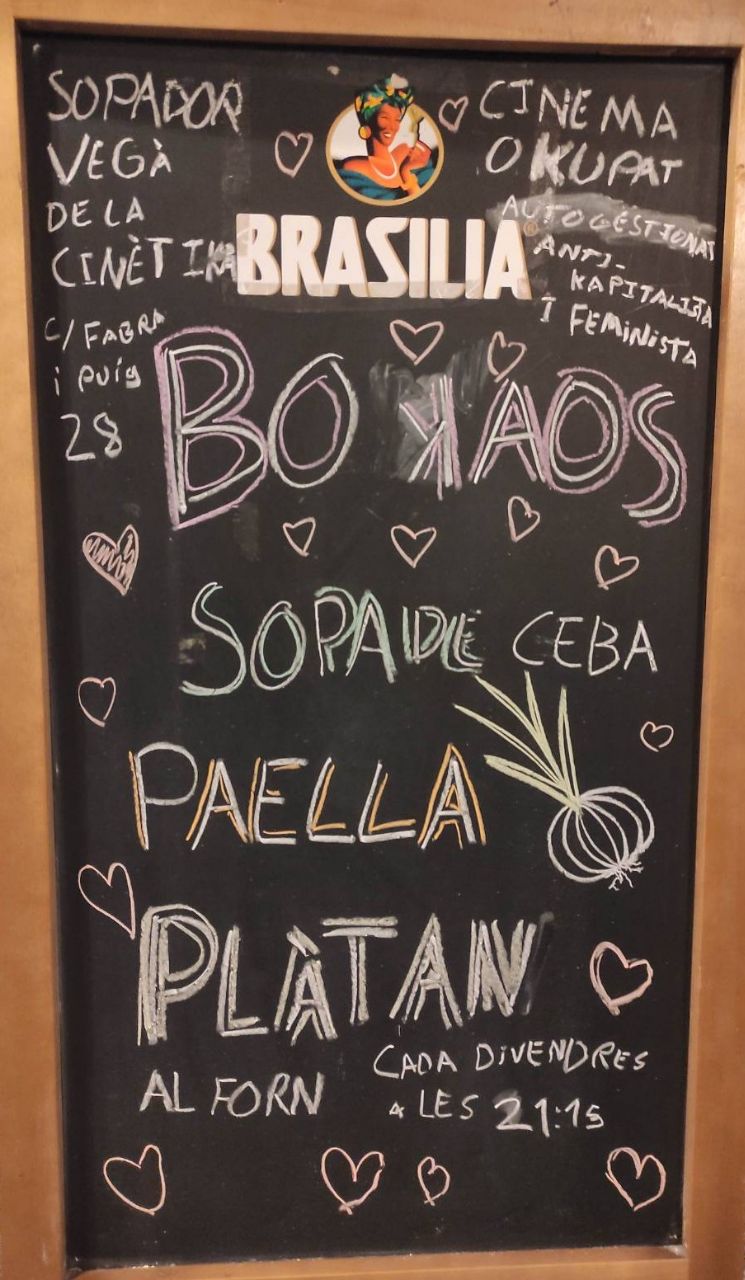 SOPADOR
VEGÀ
DE LA
CINÈTIKA
C/ FABRA
i PUIG
28
CINEMA
OKUPAT
AUTOGESTIONAT
ANTI-
KAPITALISTA
I FEMINISTA
BRASILIA®
BO KAOS
SOPA DE CEBA
PAELLA
PLÀTAN
AL FORN
CADA DIVENDRES
A LES 21:15